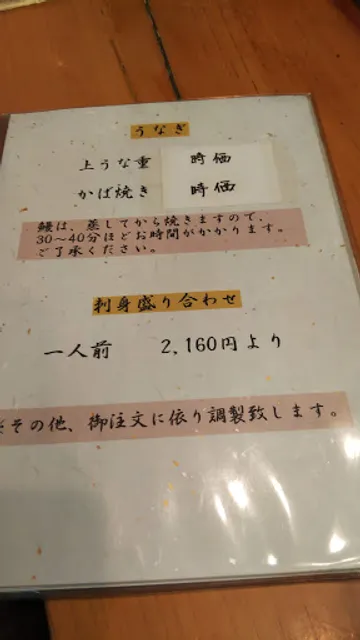 うなぎ
上うな重 時価
かば焼き 時価
鰻は、蒸してから焼きますので、
30～40分ほどお時間がかかります。
ご了承ください。
刺身盛り合わせ
一人前 2,160円より
その他、御注文に依り調製致します。